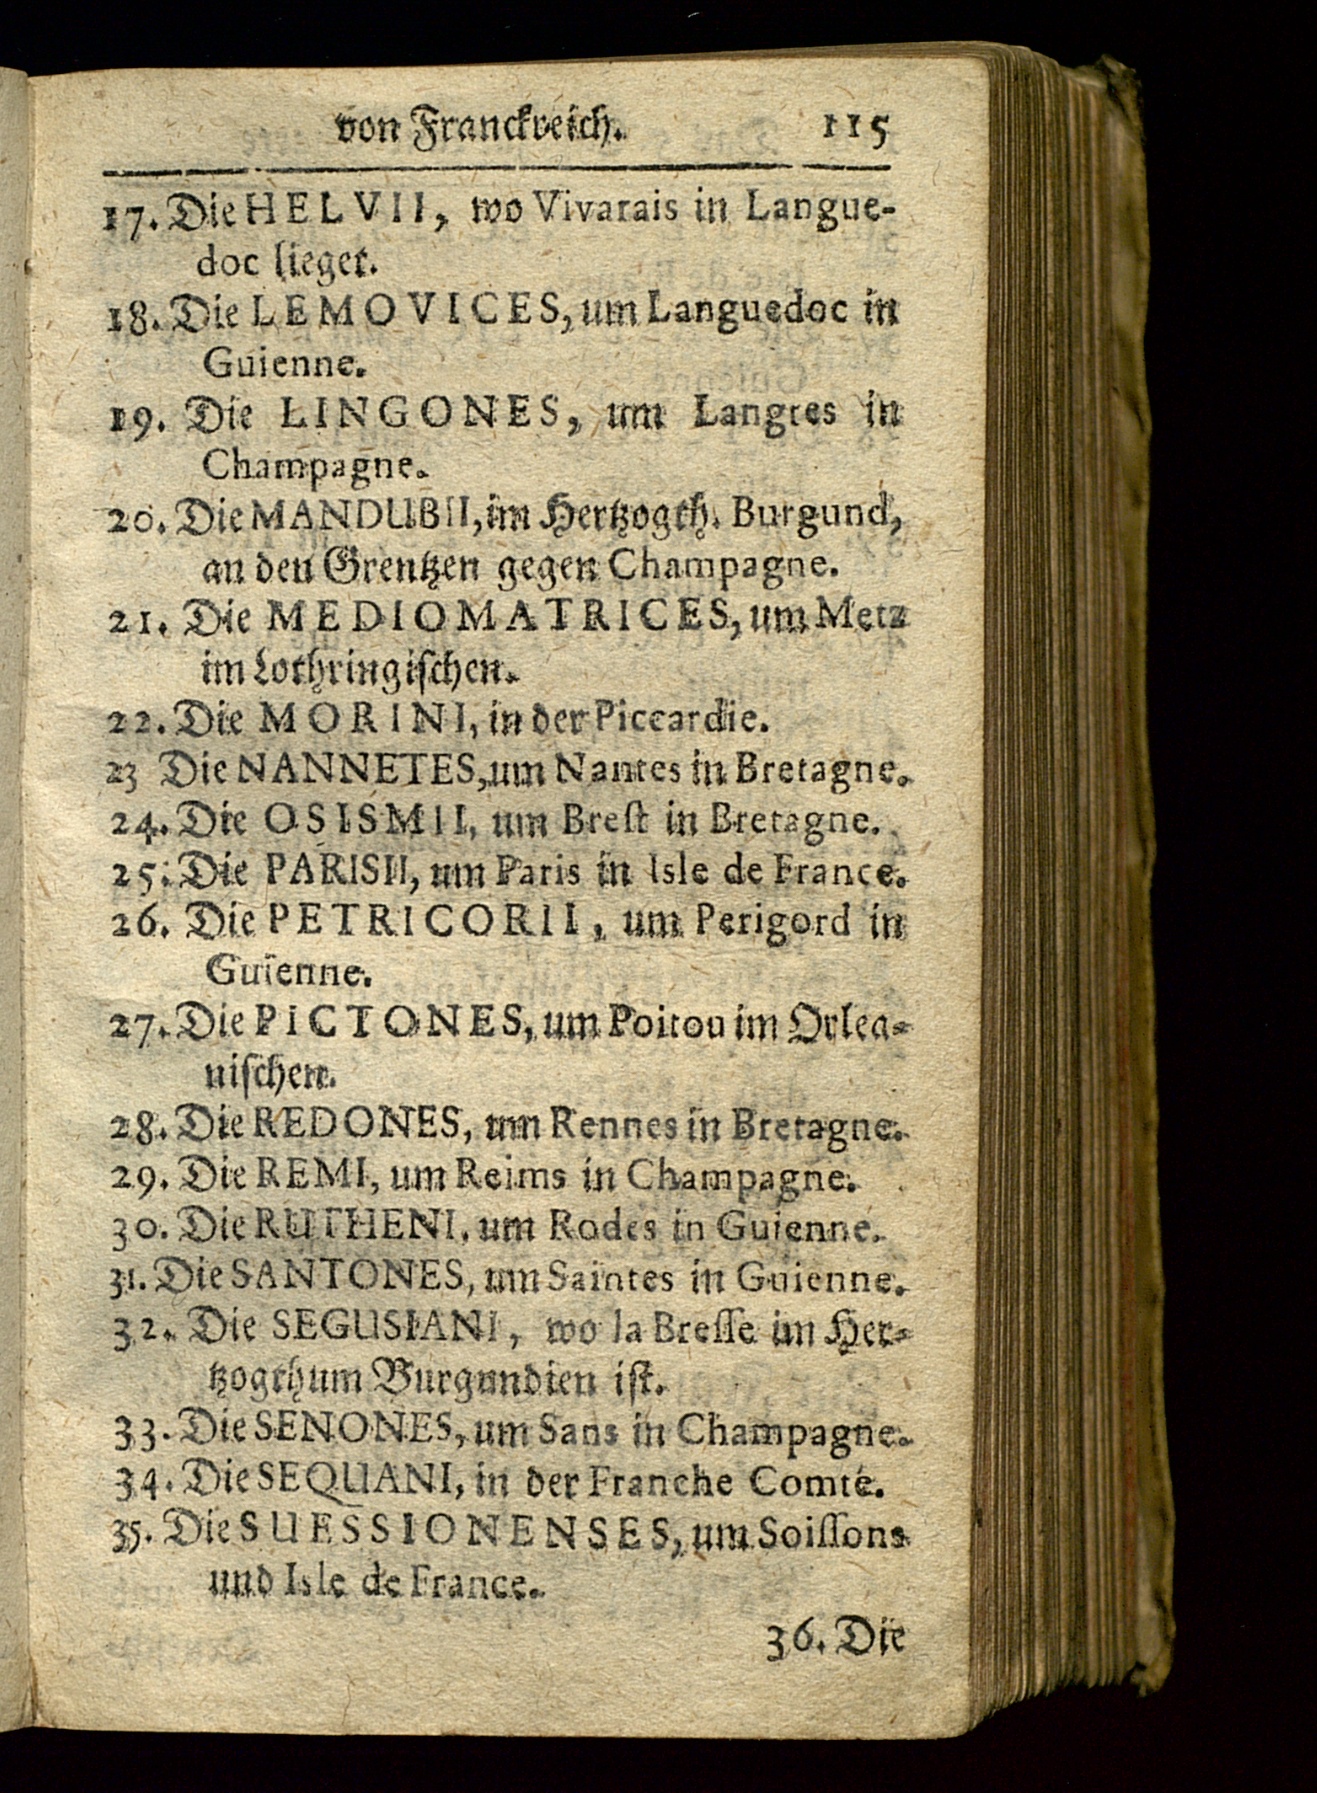 von Franckreich. 115
17. Die HELVII, wo Vivarais in Langue-
doc lieget.
18. Die LEMOVICES, um Languedoc in
Guienne.
19. Die LINGONES, um Langres in
Champagne.
20. Die MANDUBII, im Hertzogth. Burgund,
an den Grentzen gegen Champagne.
21. Die MEDIOMATRICES, um Metz
im Lothringischen.
22. Die MORINI, in der Piccardie.
23 Die NANNETES, um Nantes in Bretagne.
24. Die OSISMII, um Brest in Bretagne.
25. Die PARISII, um Paris in Isle de France.
26. Die PETRICORII, um Perigord in
Guienne.
27. Die PICTONES, um Poitou im Orlea-
nischen.
28. Die REDONES, um Rennes in Bretagne.
29. Die REMI, um Reims in Champagne.
30. Die RUTHENI, um Rodes in Guienne.
31. Die SANTONES, um Saintes in Guienne.
32. Die SEGUSIANI, wo la Bresse im Her-
tzogthum Burgundien ist.
33. Die SENONES, um Sans in Champagne.
34. Die SEQUANI, in der Franche Comté.
35. Die SUESSIONENSES, um Soissons
und Isle de France.
36. Die